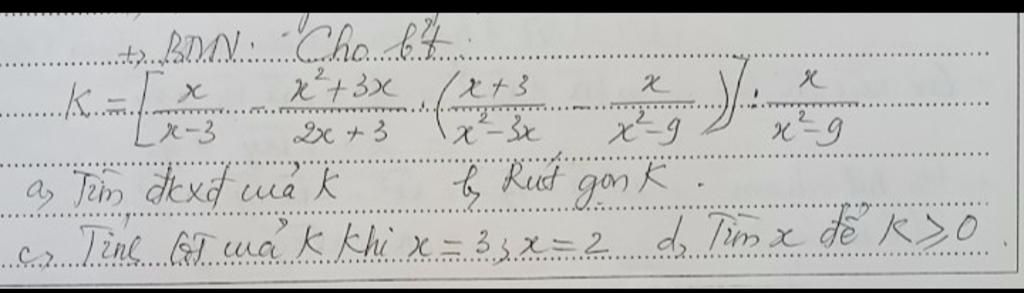 +) BTVN: Cho bt:
K = [x/(x-3) - (x²+3x)/(2x+3) · ((x+3)/(x²-3x) - x/(x²-9))] : x/(x²-9)
a, Tìm đkxđ của K b, Rút gọn K.
c, Tính GT của K khi x = 3; x = 2 d, Tìm x để K ⩾ 0.